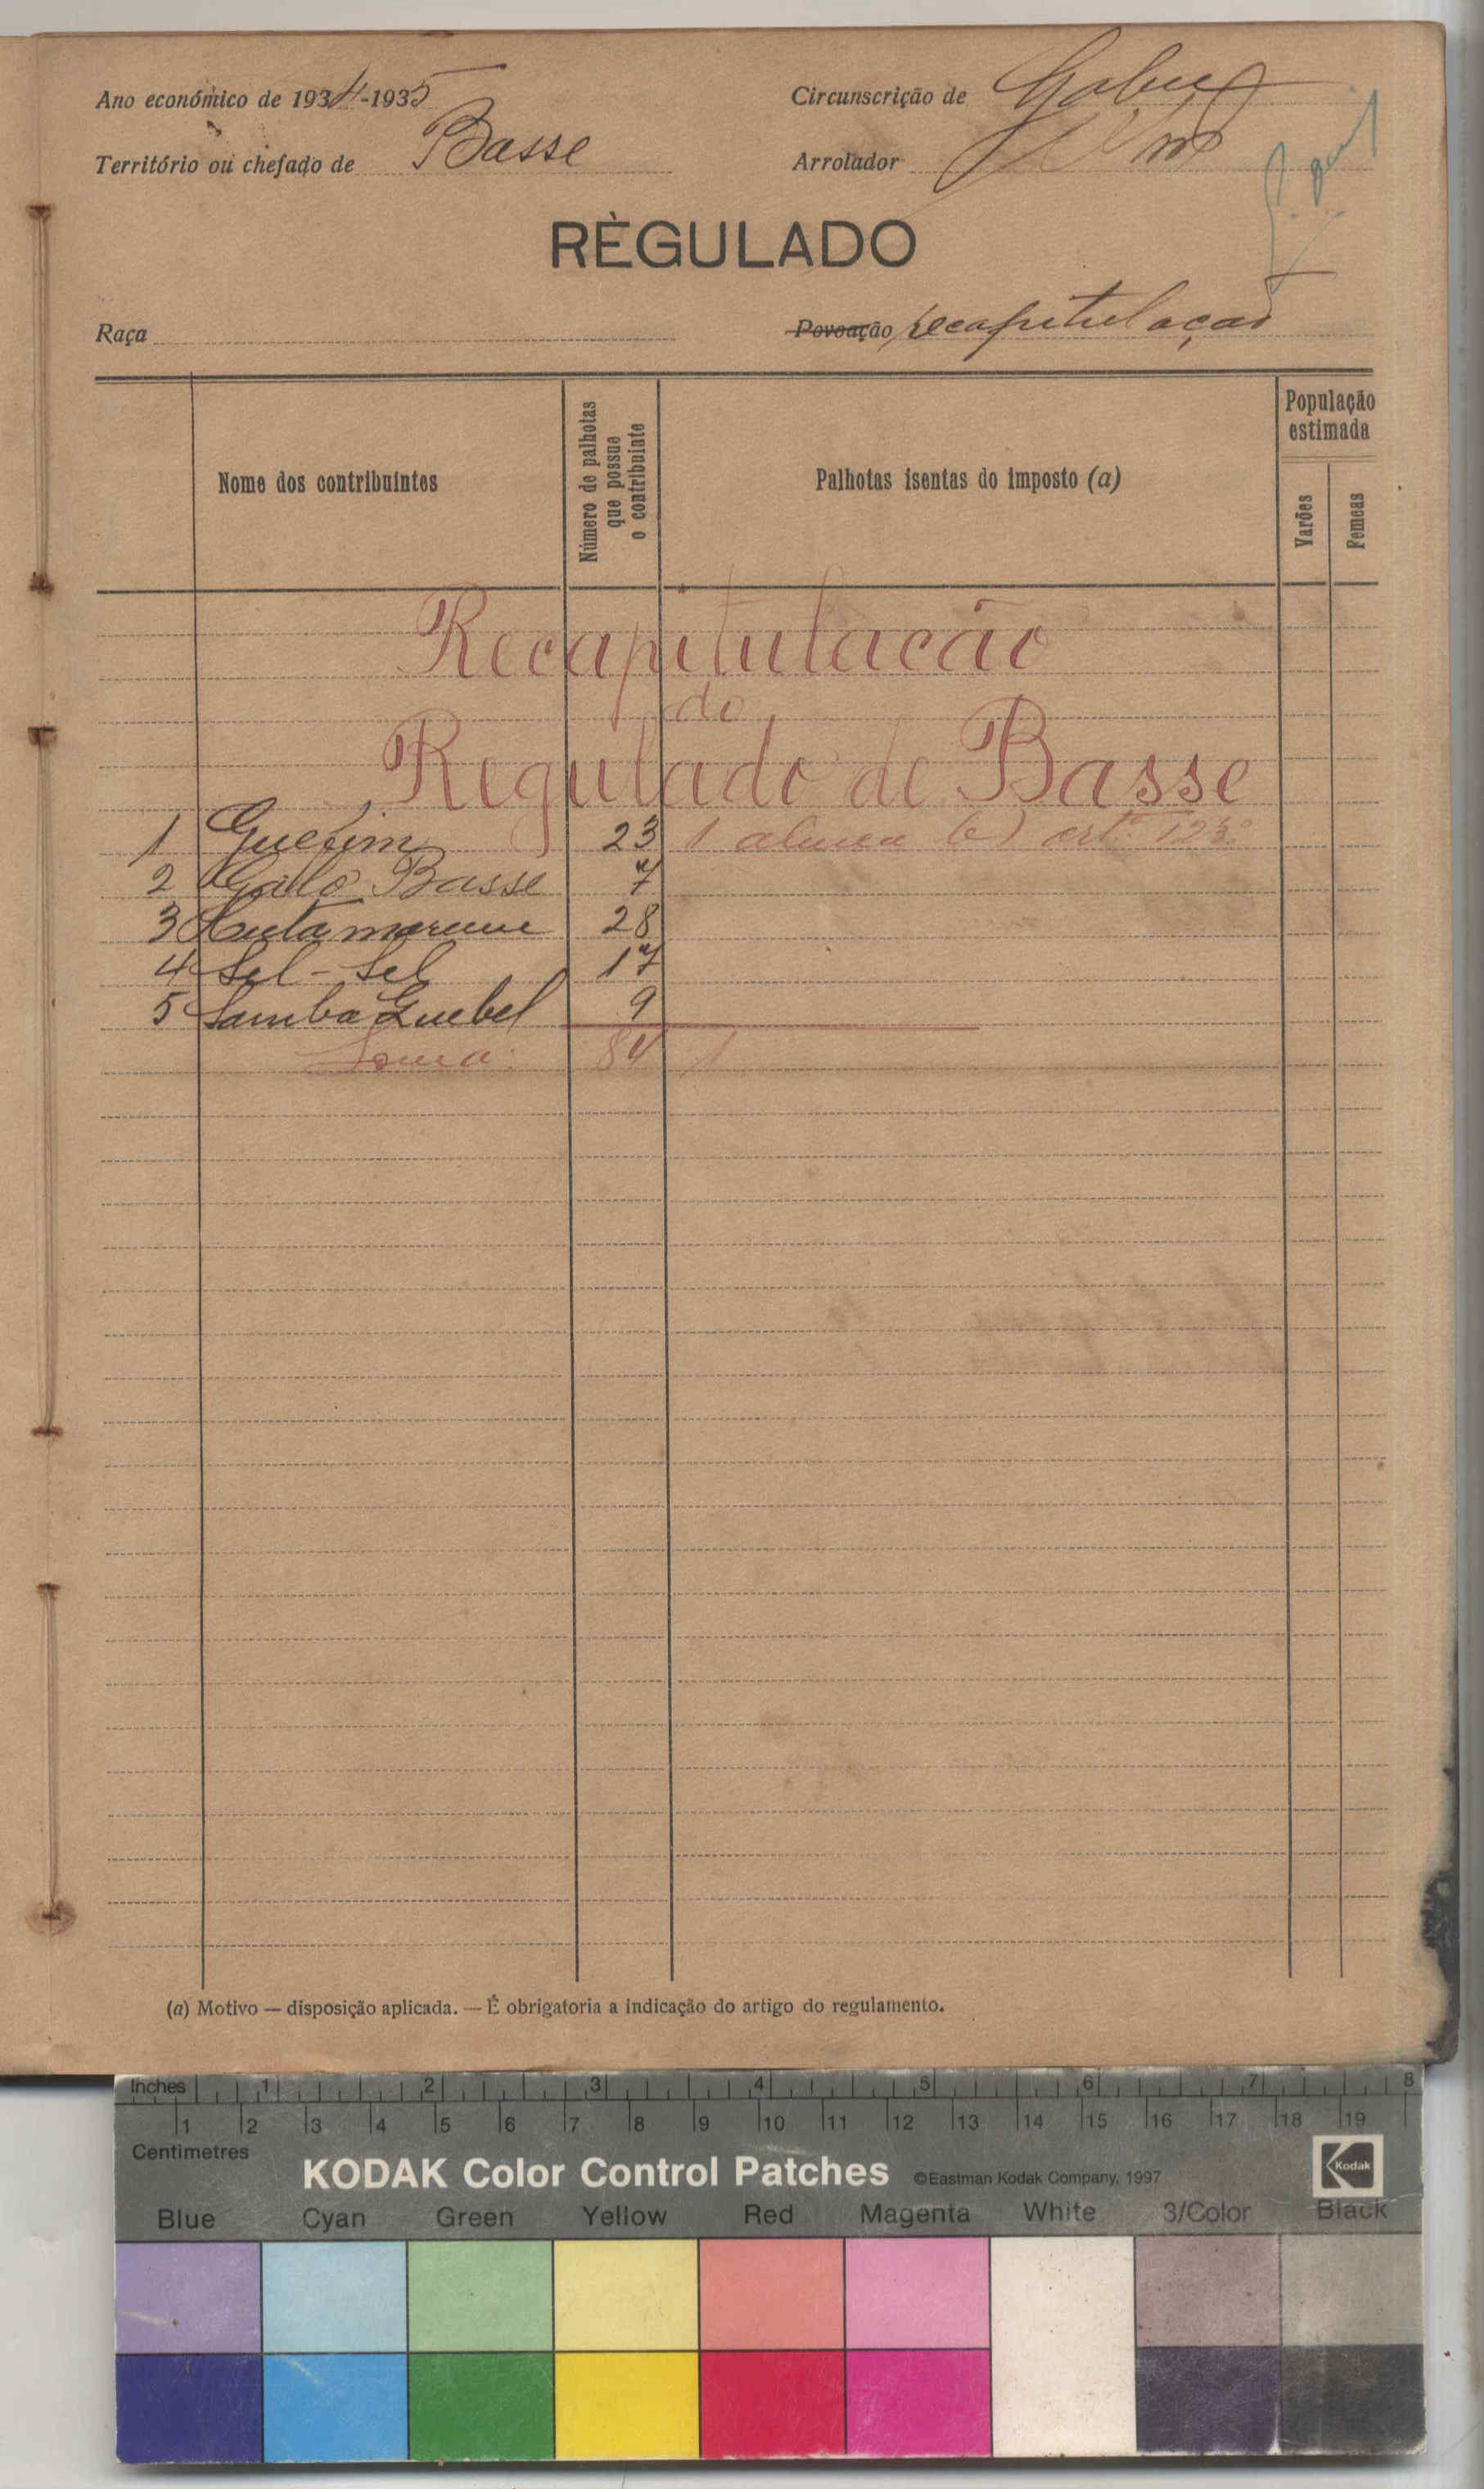 Ano económico de 1934-1935
Circunscrição de Gabu
Território ou chefado de Basse
Arrolador
RÈGULADO
Raça
Povoação recapitulação
Nome dos contribuintes
Número de palhotas que possue o contribuinte
Palhotas isentas do imposto (a)
População estimada
Varões
Femeas
Recapitulacão
do
Regulado de Basse
1 Guefim 23 1 alinea b) artº 123º
2 Basse 7
3 28
4 Sel-Sel 17
5 Samba Guebel 9
Soma: 84 1
(a) Motivo — disposição aplicada. — É obrigatoria a indicação do artigo do regulamento.
Inches 1 2 3 4 5 6 7 8
1 2 3 4 5 6 7 8 9 10 11 12 13 14 15 16 17 18 19
Centimetres
KODAK Color Control Patches ©Eastman Kodak Company, 1997 Kodak
Blue Cyan Green Yellow Red Magenta White 3/Color Black